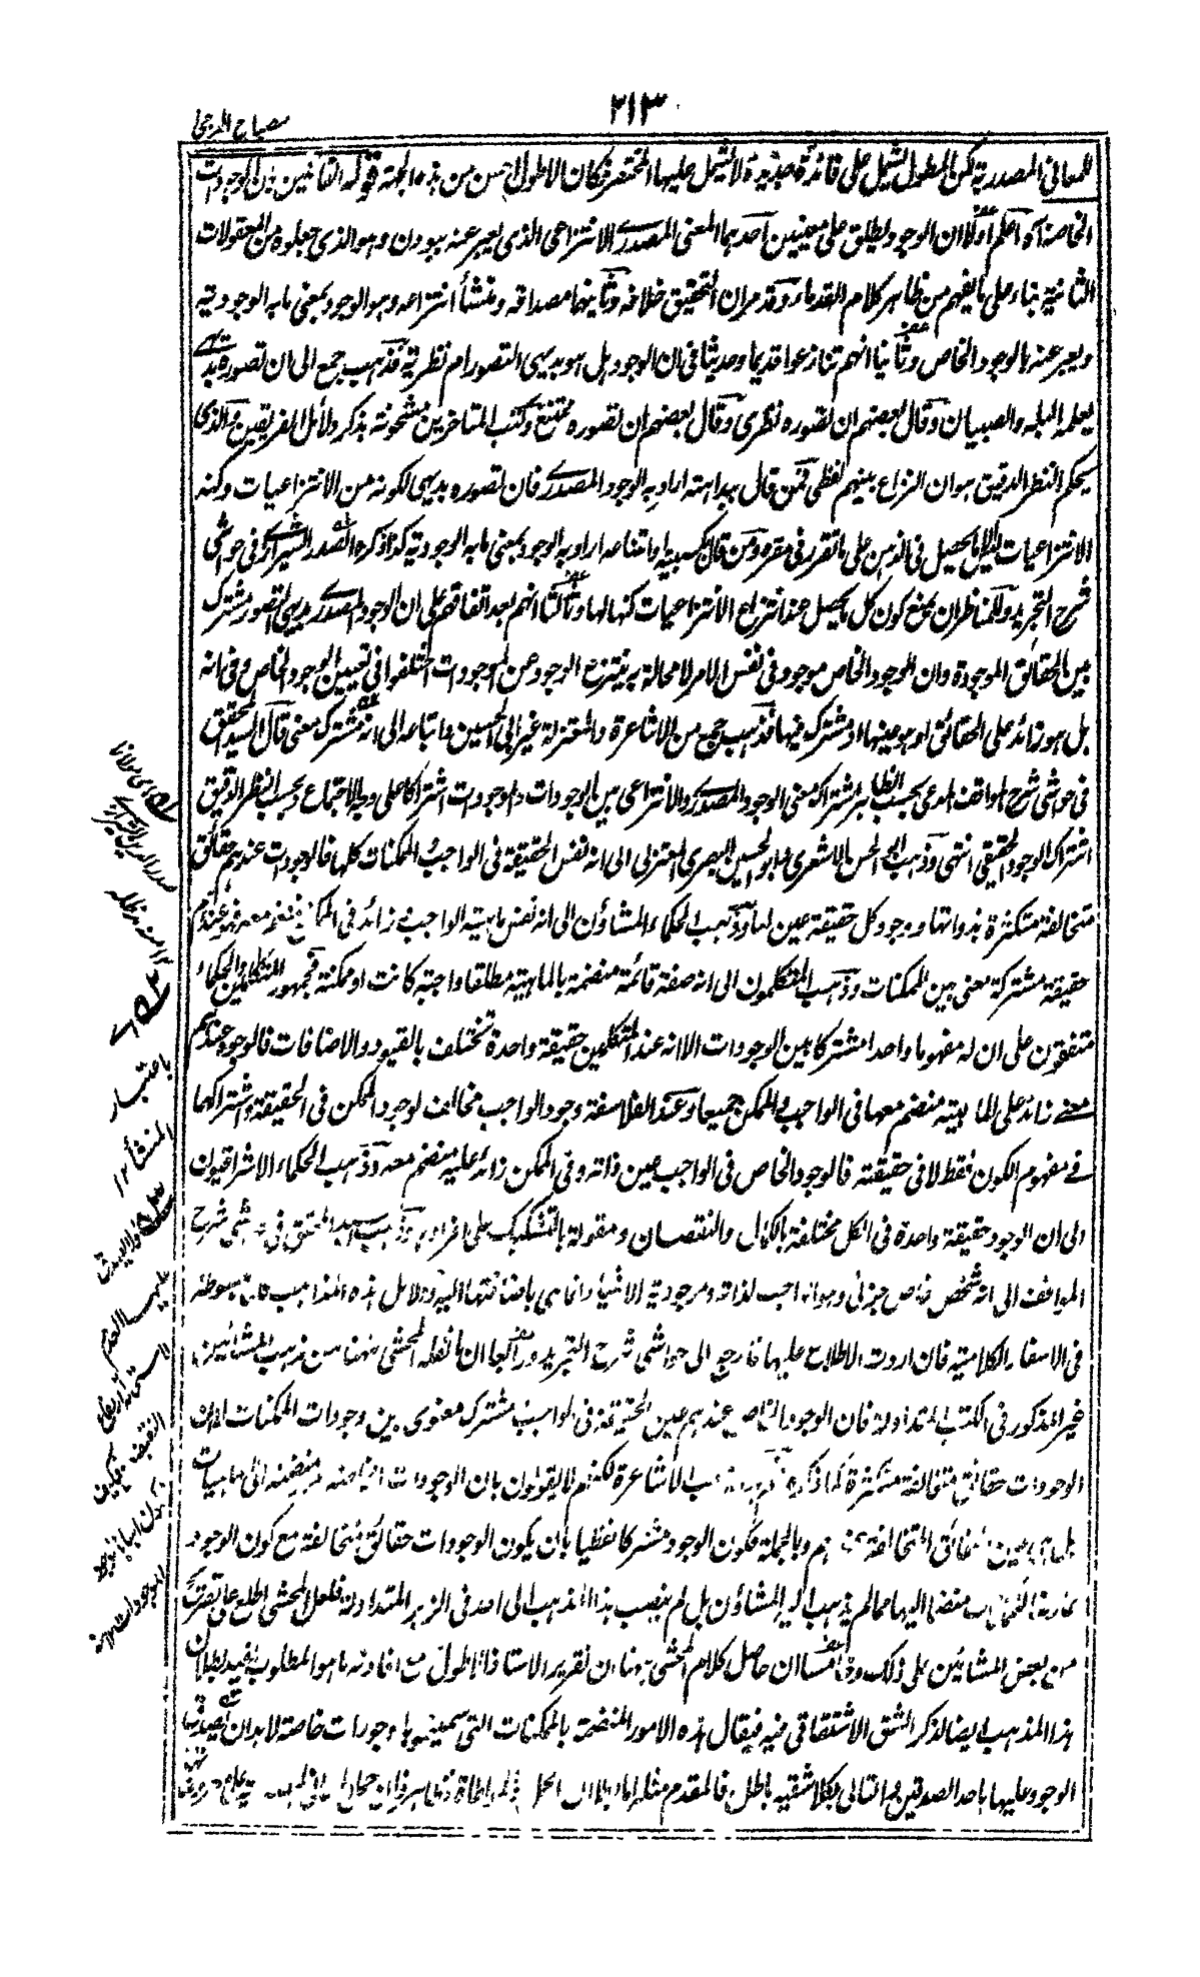 ٢١٣
مصباح الدجى
للمعاني المصدرية لكن المطول يشتمل على فائدة جديدة لا يشتمل عليها المختصر فكان الاطول احسن من هذه الجهة قوله القائلين بان الوجودات
الخاصة اه اعلم اولا ان الوجود يطلق على معنيين احدهما المعنى المصدرى الانتزاعى الذى يعبر عنه ببودن وهو الذي جعلوه من المعقولات
الثانية بناء على ما يفهم من ظاهر كلام القدماء وقد مر ان التحقيق خلافه وثانيهما مصداقه ومنشأ انتزاعه وهو الوجود بمعنى ما به الموجودية
ويعبر عنه بالوجود الخاص وثانيا انهم تنازعوا قديما وحديثا في ان الوجود هل هو بديهى التصور ام نظرية فذهب جمع الى ان تصوره بديهى
يعلمه البله والصبيان وقال بعضهم ان تصوره نظرى وقال بعضهم ان تصوره ممتنع وكتب المتاخرين مشحونة بذكر دلائل الفريقين والذى
يحكم النظر الدقيق هو ان النزاع بينهم لفظى فمن قال ببداهته اراد به الوجود المصدرى فان تصوره بديهى لكونه من الانتزاعيات وكنه
الانتزاعيات ليس الا ما يحصل في الذهن على ما تقرر في مقره ومن قال بكسبيته او امتناعه اراد به الوجود بمعنى ما به الموجودية كذا ذكره الصدر الشيرازى في حواشى
شرح التجريد وللمناظر ان يمنع كون كل ما يحصل عند انتزاع الانتزاعيات كنها لها وثالثا انهم بعد اتفاقهم على ان الوجود المصدرى بديهى التصور مشترك
بين الحقائق الموجودة وان الوجود الخاص موجود في نفس الامر لا محالة به ينتزع الوجود عن الموجودات اختلفوا في تعيين الوجود الخاص وفى انه
هل هو زائد على الحقائق او هو عينها او مشترك فيها فذهب جمع من الاشاعرة والمعتزلة غير ابى الحسين واتباعه الى انه مشترك معنى قال السيد المحقق
في حواشى شرح المواقف المدعى بحسب الظاهر اشتراك معنى الوجود المصدرى والانتزاعى بين الوجودات والموجودات اشتراكا على وجه الاجتماع وبحسب النظر الدقيق
اشتراك الوجود الحقيقى انتهى وذهب ابو الحسن الاشعرى وابو الحسين البصرى المعتزلى الى انه نفس الحقيقة في الواجب والممكنات كلها فالوجودات عندهم حقائق
متخالفة متكثرة بذواتها ووجود كل حقيقة عين لها وذهب الحكماء المشاؤن الى انه نفس ماهية الواجب زائد في الممكن منضم معه فهو عندهم
حقيقة مشتركة معنى بين الممكنات وذهب المتكلمون الى انه صفة قائمة منضمة بالماهية مطلقا واجبة كانت او ممكنة فجمهور المتكلمين والحكماء
متفقون على ان له مفهوما واحدا مشتركا بين الوجودات الا انه عند المتكلمين حقيقة واحدة تختلف بالقيود والاضافات فالوجود عندهم
معنى زائد على الماهية منضم معها في الواجب والممكن جميعا وعند الفلاسفة وجود الواجب مخالف لوجود الممكن في الحقيقة واشتراكهما
في مفهوم الكون فقط لا في حقيقته فالوجود الخاص في الواجب عين ذاته وفى الممكن زائد عليه منضم معه وذهب الحكماء الاشراقيون
الى ان الوجود حقيقة واحدة في الكل مختلفة بالكمال والنقصان ومقولة بالتشكيك على افراده وذهب السيد المحقق في حواشى شرح
المواقف الى انه شخص خاص جزئى وهو الواجب لذاته وموجودية الاشياء انما هى باضافتها اليه ودلائل هذه المذاهب مبسوطة
في الاسفار الكلامية فان اردت الاطلاع عليها فارجع الى حواشى شرح التجريد ورابعا ان ما نقله المحشى ههنا من مذهب المشائين
غير المذكور في الكتب المتداولة فان الوجود الخاص عندهم عين الحقيقة في الواجب مشترك معنوى بين وجودات الممكنات لا ان
الوجودات حقائق متخالفة متكثرة كما ذكره مذهب الاشاعرة لكنهم لا يقولون بان الوجودات الخاصة منضمة الى الماهيات
بل هى عين الحقائق المتخالفة عندهم وبالجملة فكون الوجود مشتركا لفظيا بان يكون الوجودات حقائق متخالفة مع كون الوجود
منضما اليها مما لم يذهب اليه المشاؤن بل لم ينصب هذا المذهب الى احد في الزبر المتداولة فلعل المحشى اطلع على تصريح
من بعض المشائين على ذلك وخامسا ان حاصل كلام المحشى هنا ان تقرير الاستاذ الاطول مع افادته ما هو المطلوب يفيد بطلان
هذا المذهب ايضا لذكر الشق الاشتقاقى فيه فيقال هذه الامور المنضمة بالممكنات التى سميتموها وجودات خاصة لا بد ان يصدق
الوجود عليها باحد الصدقين والتالى بكلا شقيه باطل فالمقدم مثله اما بطلان
باعتبار
المنشأ ١٢